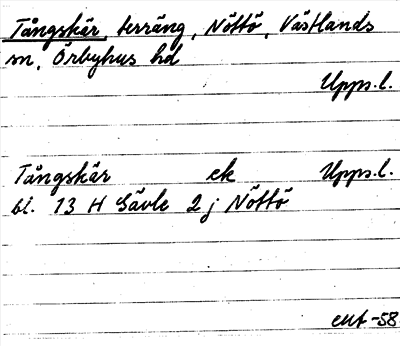 Tångskär, terräng, Nöttö, Västlands
sn, Örbyhus hd
Upps.l.
Tångskär ek Upps.l.
bl. 13 H Gävle 2j Nöttö
-58